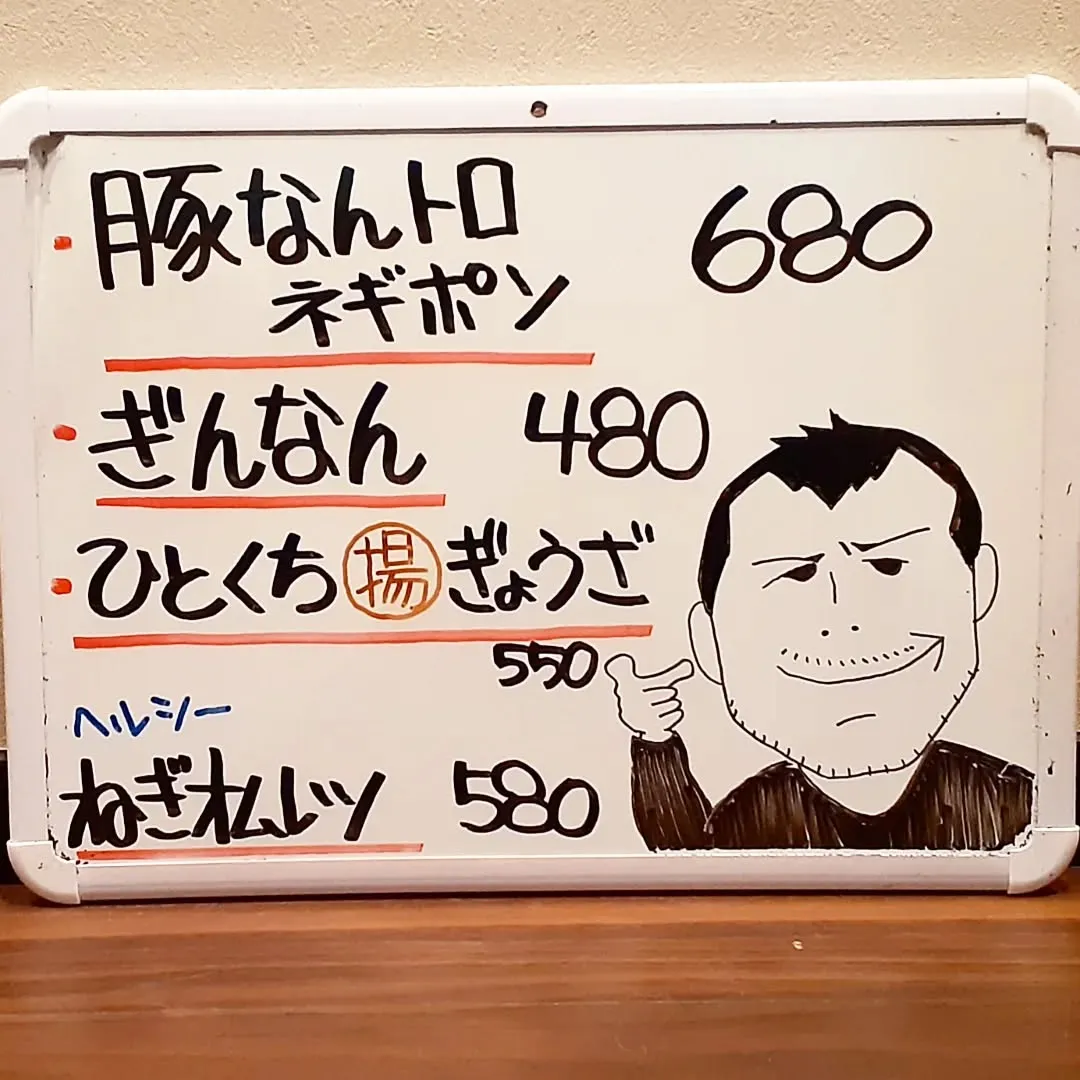 豚なんトロ 680
ネギポン
ぎんなん 480
ひとくち揚ぎょうざ
550
ヘルシー
ねぎオムレツ 580